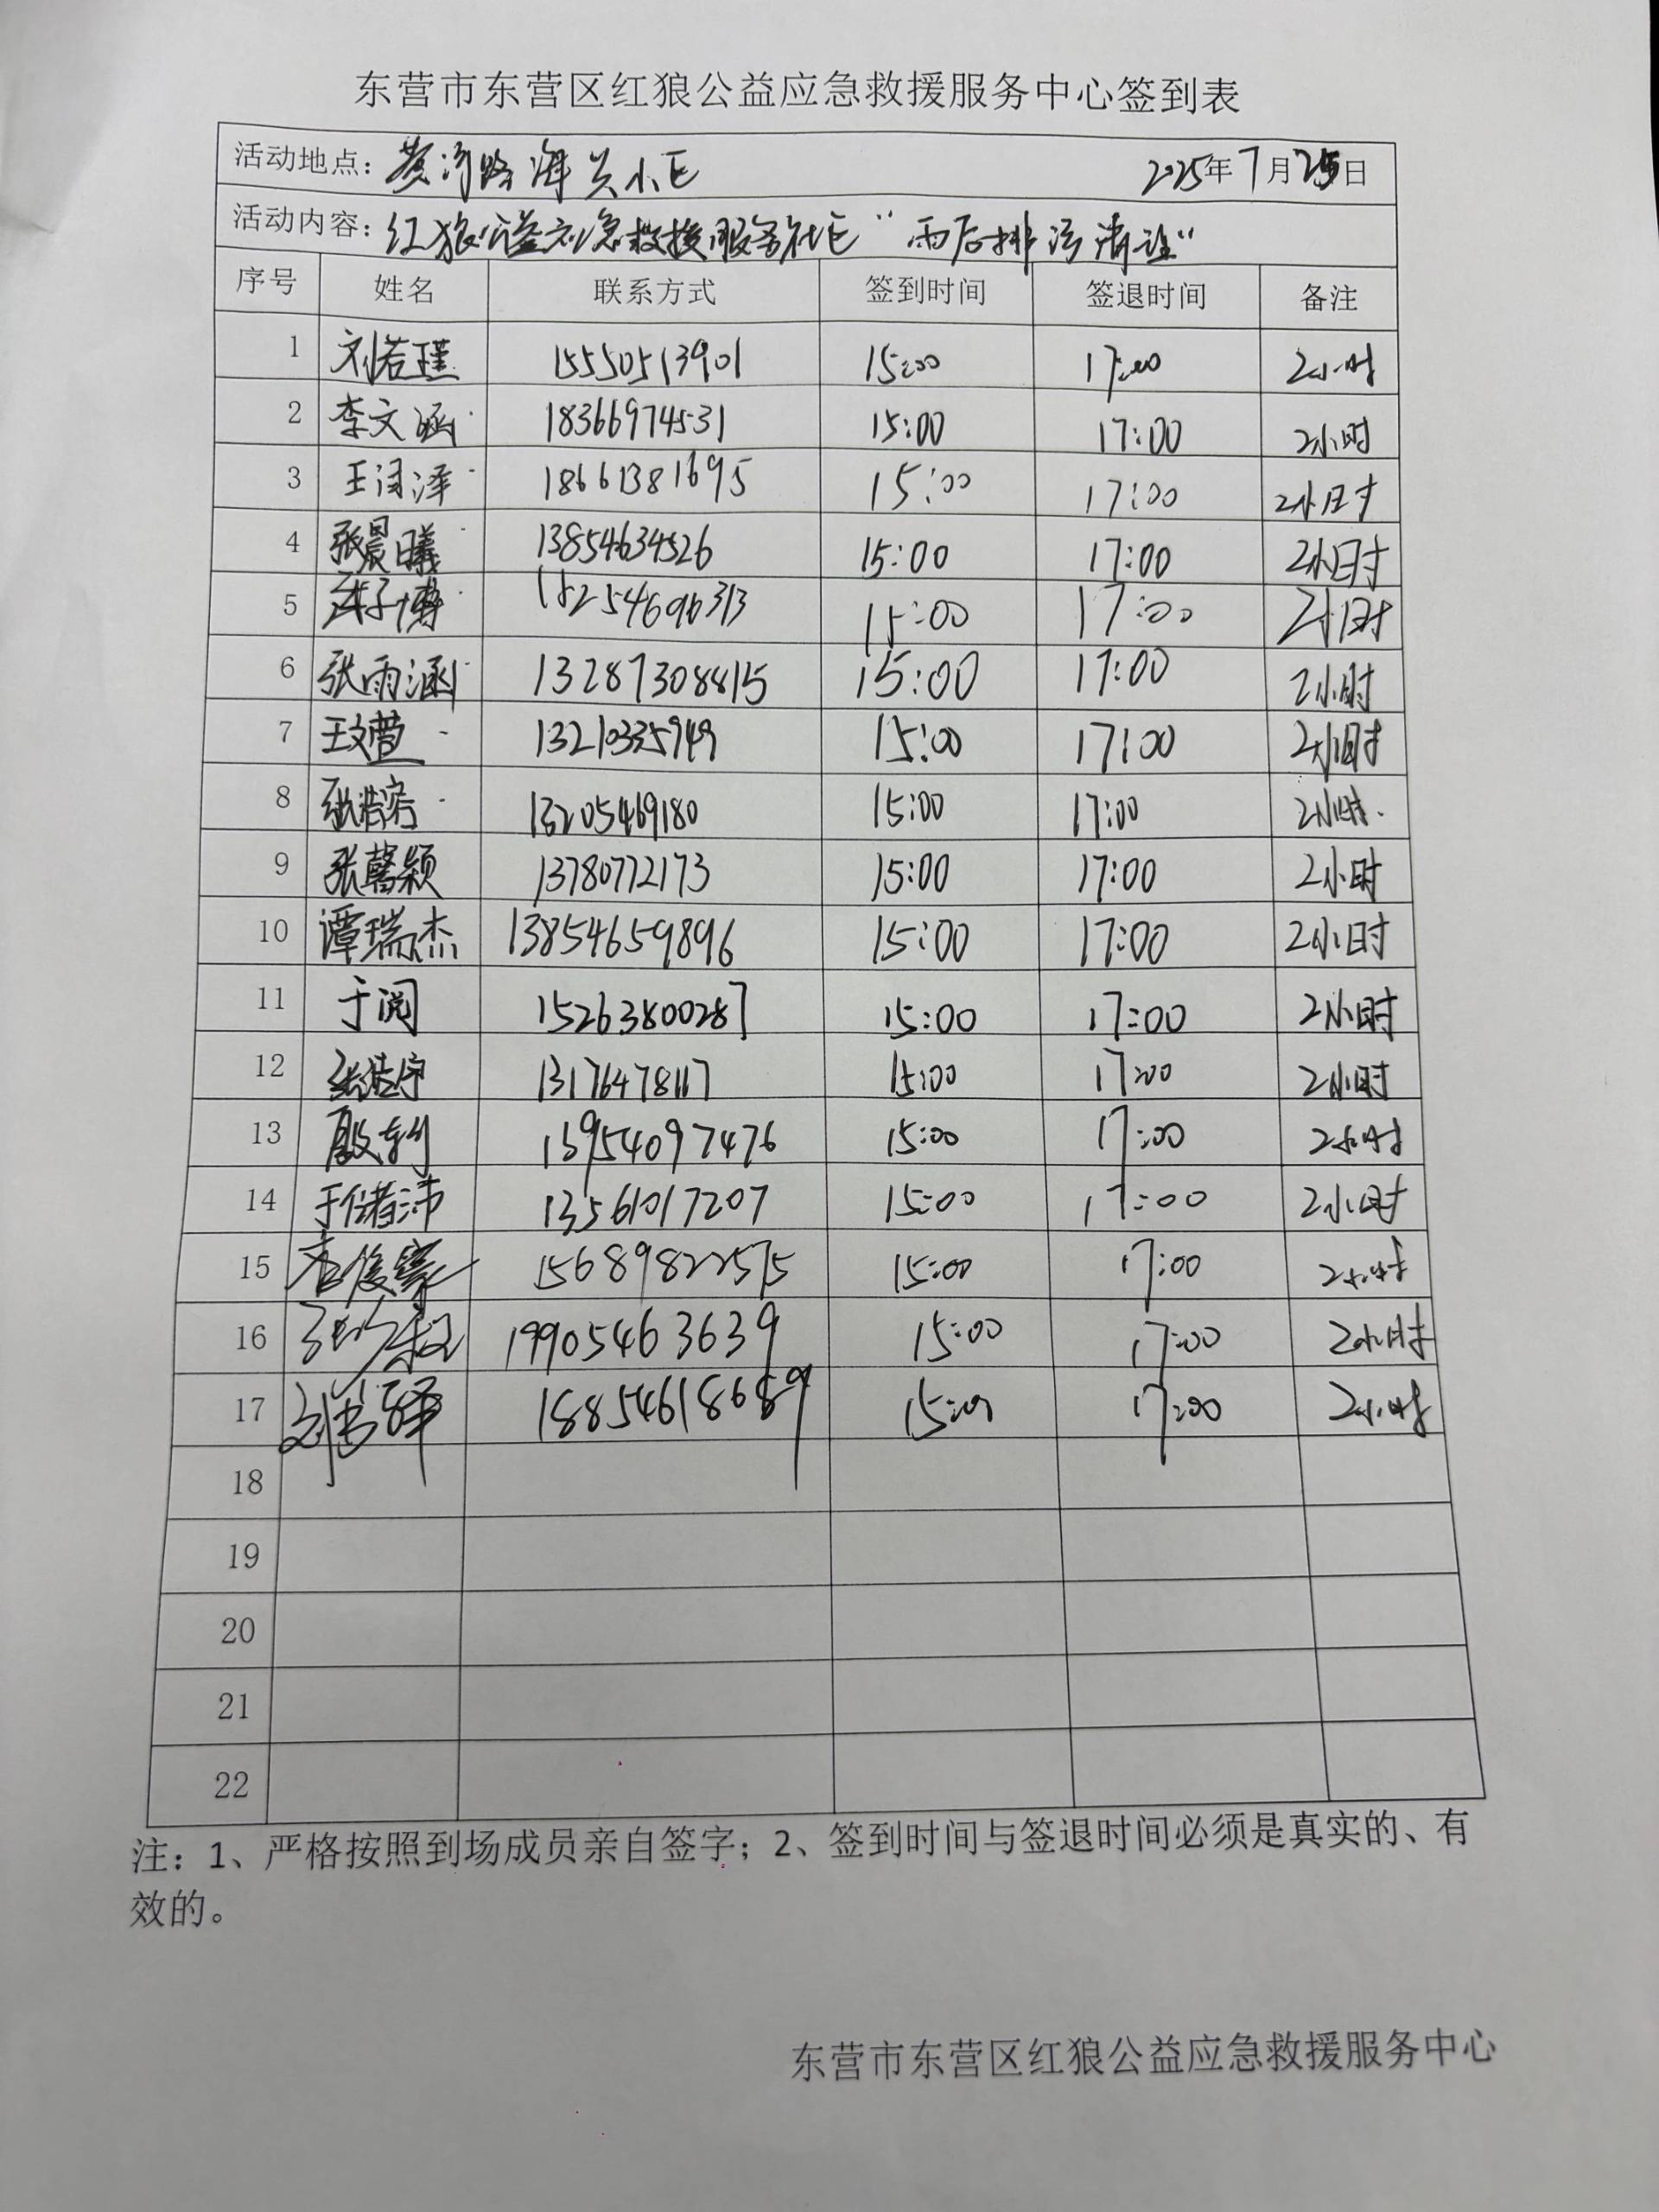 东营市东营区红狼公益应急救援服务中心签到表
活动地点：黄河路海关小区 2025年7月25日
活动内容：红狼公益应急救援服务社区“雨后排污清淤”
序号 姓名 联系方式 签到时间 签退时间 备注
1 刘若瑾 15550513901 15:00 17:00 2小时
2 李文涵 18366974531 15:00 17:00 2小时
3 王润泽 18661381695 15:00 17:00 2小时
4 张晨曦 13854634526 15:00 17:00 2小时
5 子博 15:00 17:00 2小时
6 张雨涵 13287308415 15:00 17:00 2小时
7 王文萱 13210335949 15:00 17:00 2小时
8 张 13205469180 15:00 17:00 2小时
9 张馨颖 13780772173 15:00 17:00 2小时
10 谭瑞杰 13854659896 15:00 17:00 2小时
11 于阅 15263800287 15:00 17:00 2小时
12 张浩宇 13176478117 15:00 17:00 2小时
13 殷 13954097476 15:00 17:00 2小时
14 于储沛 13561017207 15:00 17:00 2小时
15 15689822575 15:00 17:00 2小时
16 19905463639 15:00 17:00 2小时
17 刘书铎 18854618689 15:00 17:00 2小时
18
19
20
21
22
注：1、严格按照到场成员亲自签字；2、签到时间与签退时间必须是真实的、有
效的。
东营市东营区红狼公益应急救援服务中心